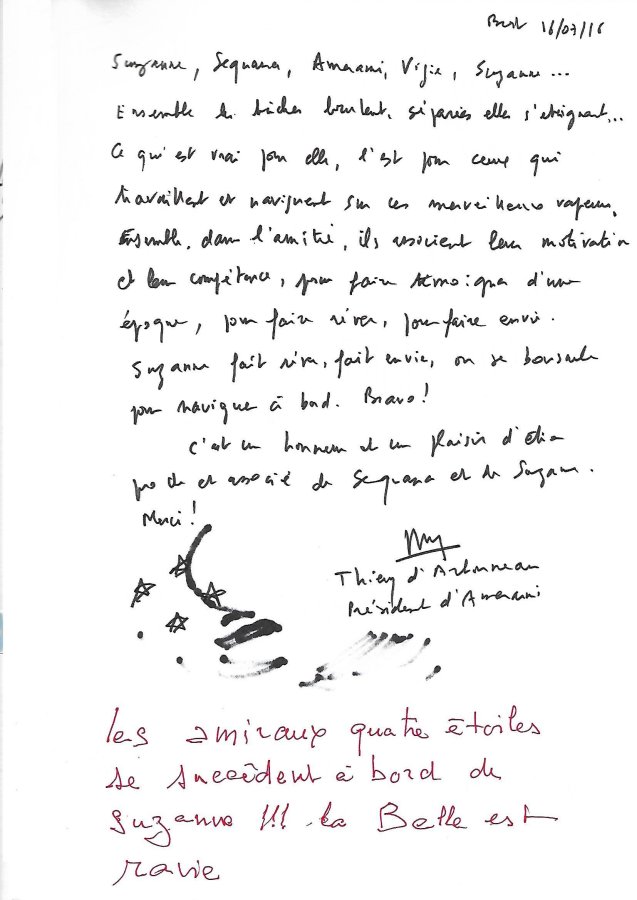 Brest 16/07/16
Suzanne, Sequana, Amerami, Vigie, Suzanne...
Ensemble les bûches brûlent, séparées elles s'éteignent...
Ce qui est vrai pour elles, l'est pour ceux qui
travaillent et naviguent sur ces merveilleux vapeurs.
Ensemble, dans l'amitié, ils associent leur motivation
et leur compétence, pour faire témoigner d'une
époque, pour faire rêver, pour faire envie.
Suzanne fait rêver, fait envie, on se bouscule
pour naviguer à bord. Bravo!
C'est un honneur et un plaisir d'être
proche et associé de Sequana et de Suzanne.
Merci!
Thierry d'
Président d'Amerami
les amiraux quatre étoiles
se succèdent à bord de
Suzanne !!! la Belle est
ravie